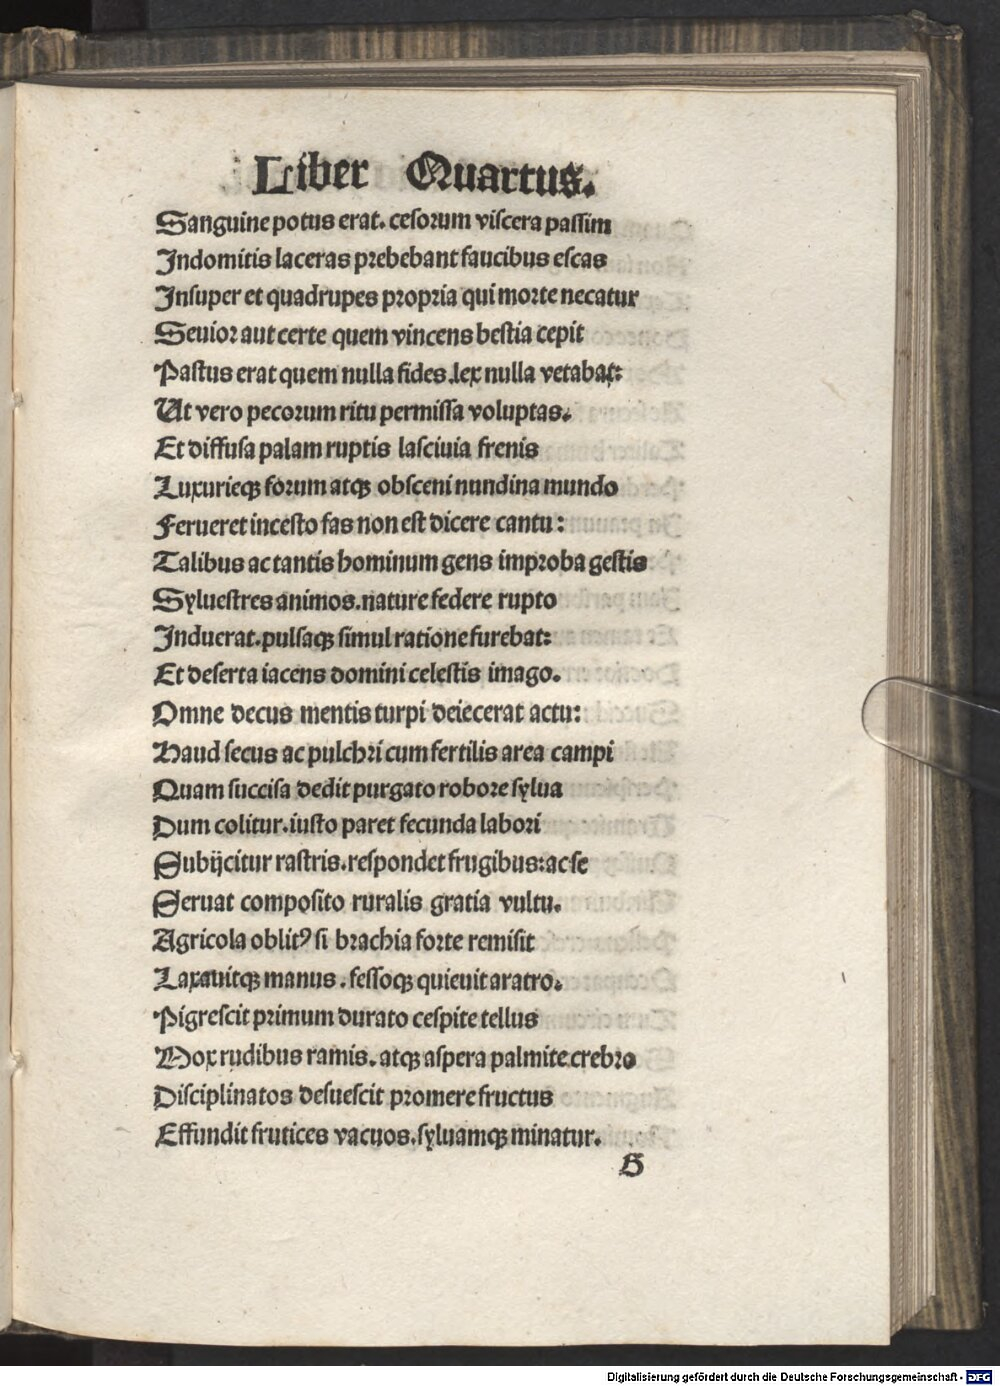 Liber Quartus.
Sanguine potus erat. cesorum viscera passim
Indomitis laceras prebebant faucibus escas
Insuper et quadrupes propria qui morte necatur
Seuior aut certe quem vincens bestia cepit
Pastus erat quem nulla fides .lex nulla vetabat:
Ut vero pecorum ritu permissa voluptas.
Et diffusa palam ruptis lasciuia frenis
Luxurieqꝫ forum atqꝫ obsceni nundina mundo
Ferueret incesto fas non est dicere cantu:
Talibus ac tantis hominum gens improba gestis
Syluestres animos. nature federe rupto
Induerat. pulsaqꝫ simul ratione furebat:
Et deserta iacens domini celestis imago.
Omne decus mentis turpi deiecerat actu:
Haud secus ac pulchri cum fertilis area campi
Quam succisa dedit purgato robore sylua
Dum colitur. iusto paret fecunda labori
Subijcitur rastris. respondet frugibus: ac se
Seruat composito ruralis gratia vultu.
Agricola oblitꝰ si brachia forte remisit
Laxauitqꝫ manus . fessoqꝫ quieuit aratro.
Pigrescit primum durato cespite tellus
Mox rudibus ramis. atqꝫ aspera palmite crebro
Disciplinatos desuescit promere fructus
Effundit frutices vacuos. syluamqꝫ minatur.
H
Digitalisierung gefördert durch die Deutsche Forschungsgemeinschaft - DFG